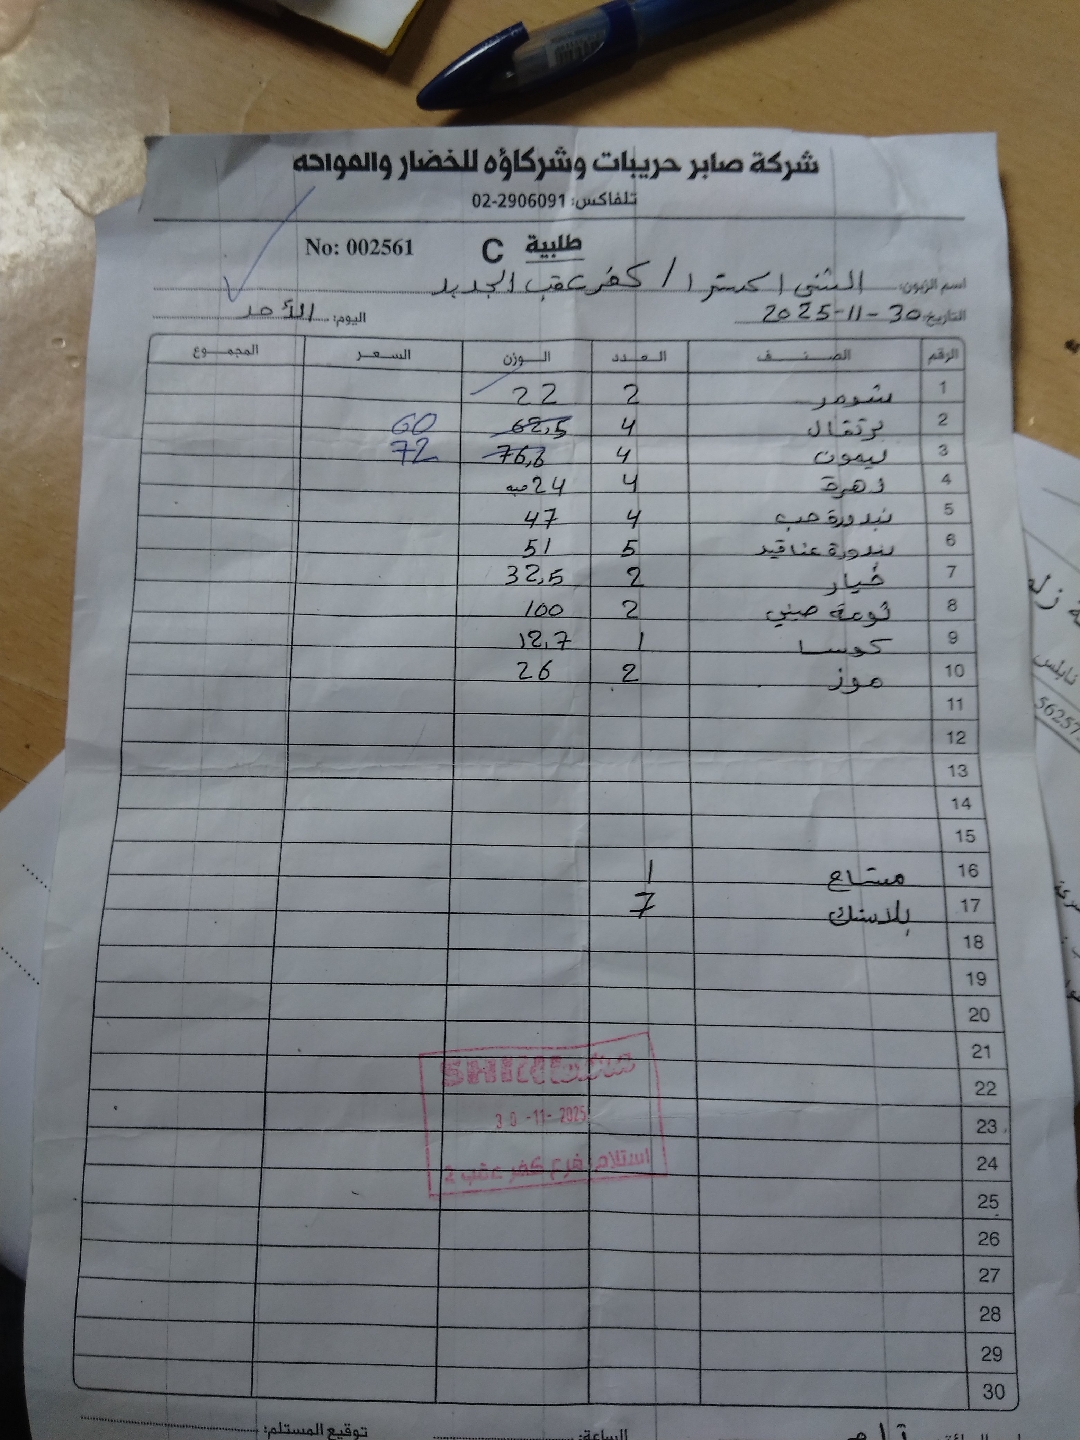 شركة صابر حريبات وشركاؤه للخضار والفواحه
تلفاكس: 02-2906091
No: 002561 C طلبية
اسم الزبون: الشني اكسترا / كفر عقب الجديد
التاريخ: 30-11-2025 اليوم: الأحد
الرقم الصنف العدد الوزن السعر المجموع
1 شومر 2 22
2 برتقال 4 62,5 60
3 ليمون 4 76,6 72
4 زهرة 4 24 حبه
5 بندورة حب 4 47
6 بندورة عناقيد 5 51
7 خيار 2 32,5
8 ثومة صيني 2 100
9 كوسا 1 12,7
10 موز 2 26
11
12
13
14
15
16 مشتاح 1
17 بلاستك 7
18
19
20
21
22
23
24
25
26
27
28
29
30
30-11-2025
استلام فرع كفر عقب 2
الساعة: توقيع المستلم:
نابلس